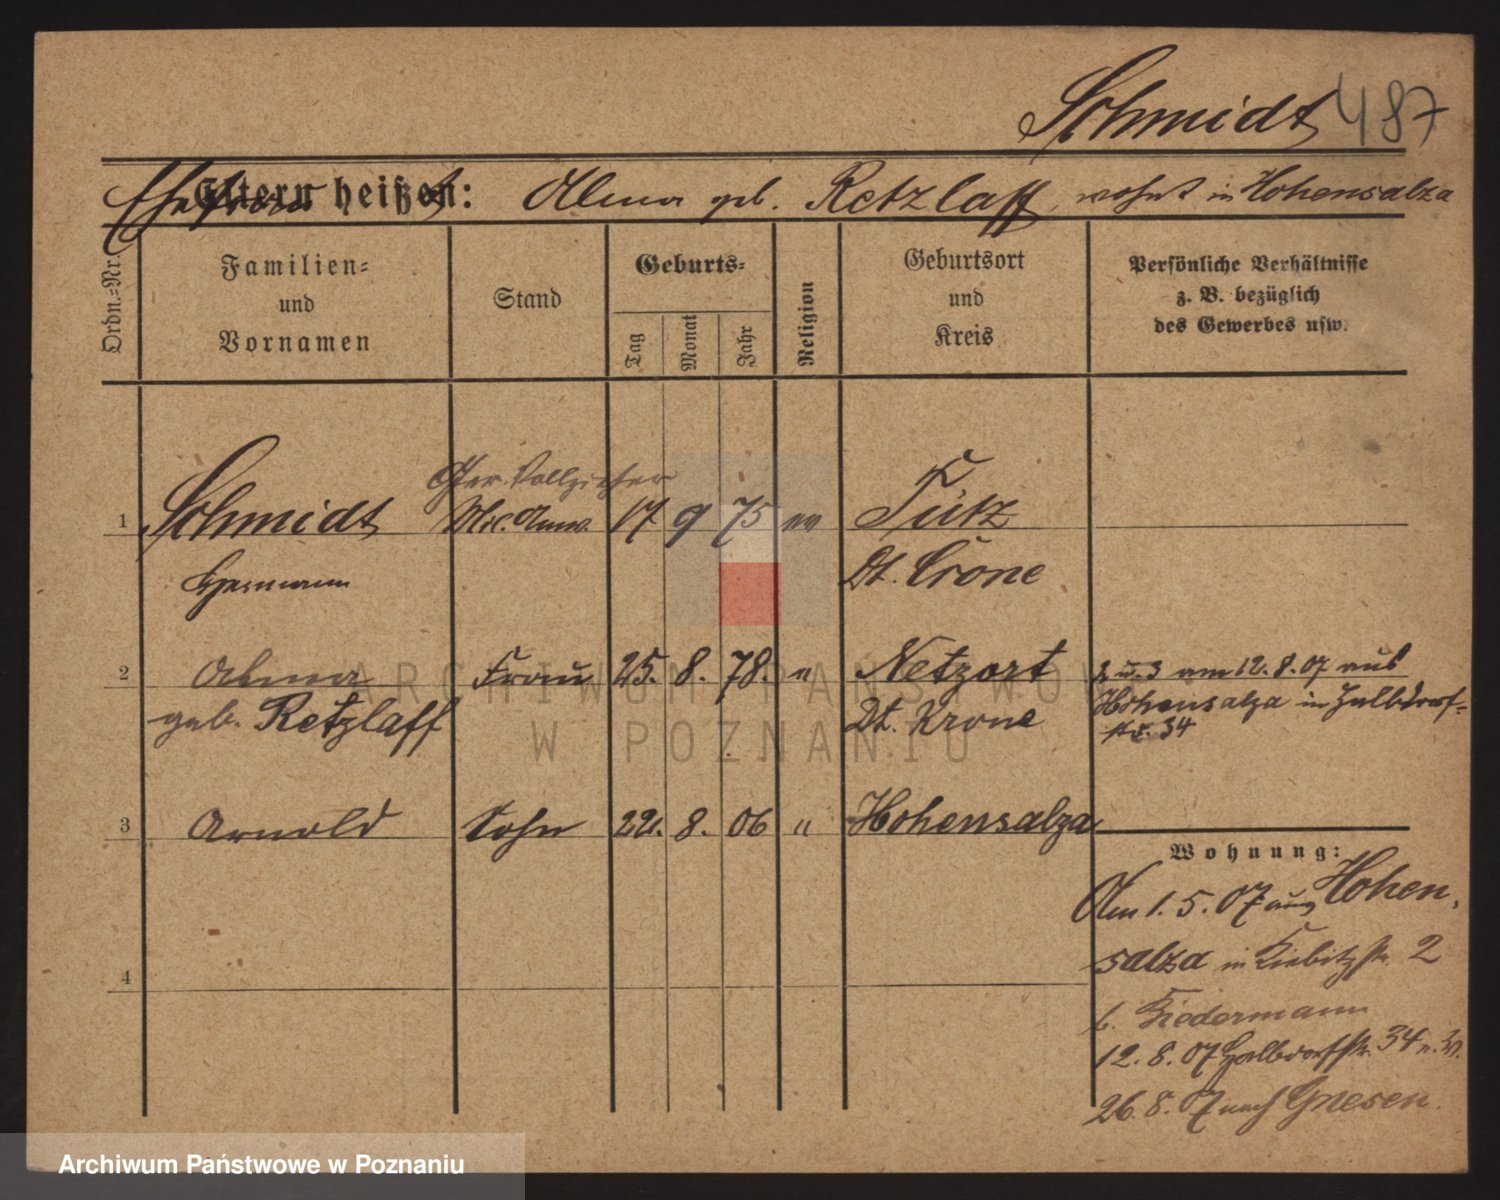 Schmidt 487
Eltern heißen:
Ehefrau Alma geb. Retzlaff, wohnt in Hohensalza
Ordn.=Nr.
Familien=
und
Vornamen
Stand
Geburts=
Tag
Monat
Jahr
Religion
Geburtsort
und
Kreis
Persönliche Verhältnisse
z. B. bezüglich
des Gewerbes usw.
Ger. Vollzieher
1 Schmidt Mil. Anw. 17 9 75 ev Tütz
Hermann Dt. Crone
2 Alma Frau 25. 8. 78. " Netzort 2 u. 3 am 12.8.07 aus
geb. Retzlaff Dt. Krone Hohensalza in Halbdorf=
str. 34
3 Arnold Sohn 22. 8. 06 " Hohensalza
Wohnung:
Am 1.5.07 aus Hohen,
salza in Kiebitzstr. 2
b. Biedermann
4
12.8.07 Halbdorfstr. 34
26.8.07 nach Gnesen.
ARCHIWUM PAŃSTWOWE
W POZNANIU
Archiwum Państwowe w Poznaniu